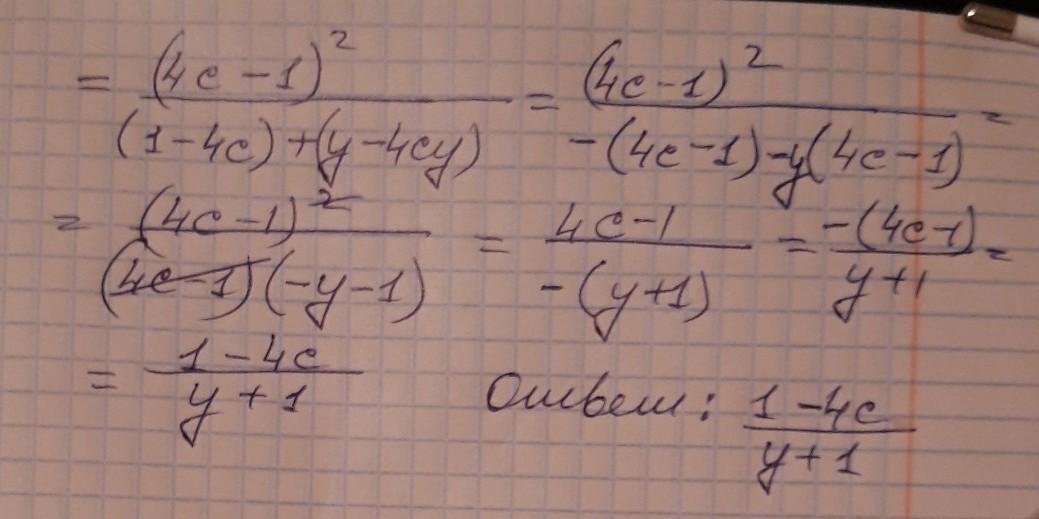 = (4c-1)² / (1-4c)+(y-4cy) = (4c-1)² / -(4c-1)-y(4c-1) =
= (4c-1)² / (4c-1)(-y-1) = 4c-1 / -(y+1) = -(4c-1) / y+1 =
= 1-4c / y+1 Ответ: 1-4c / y+1